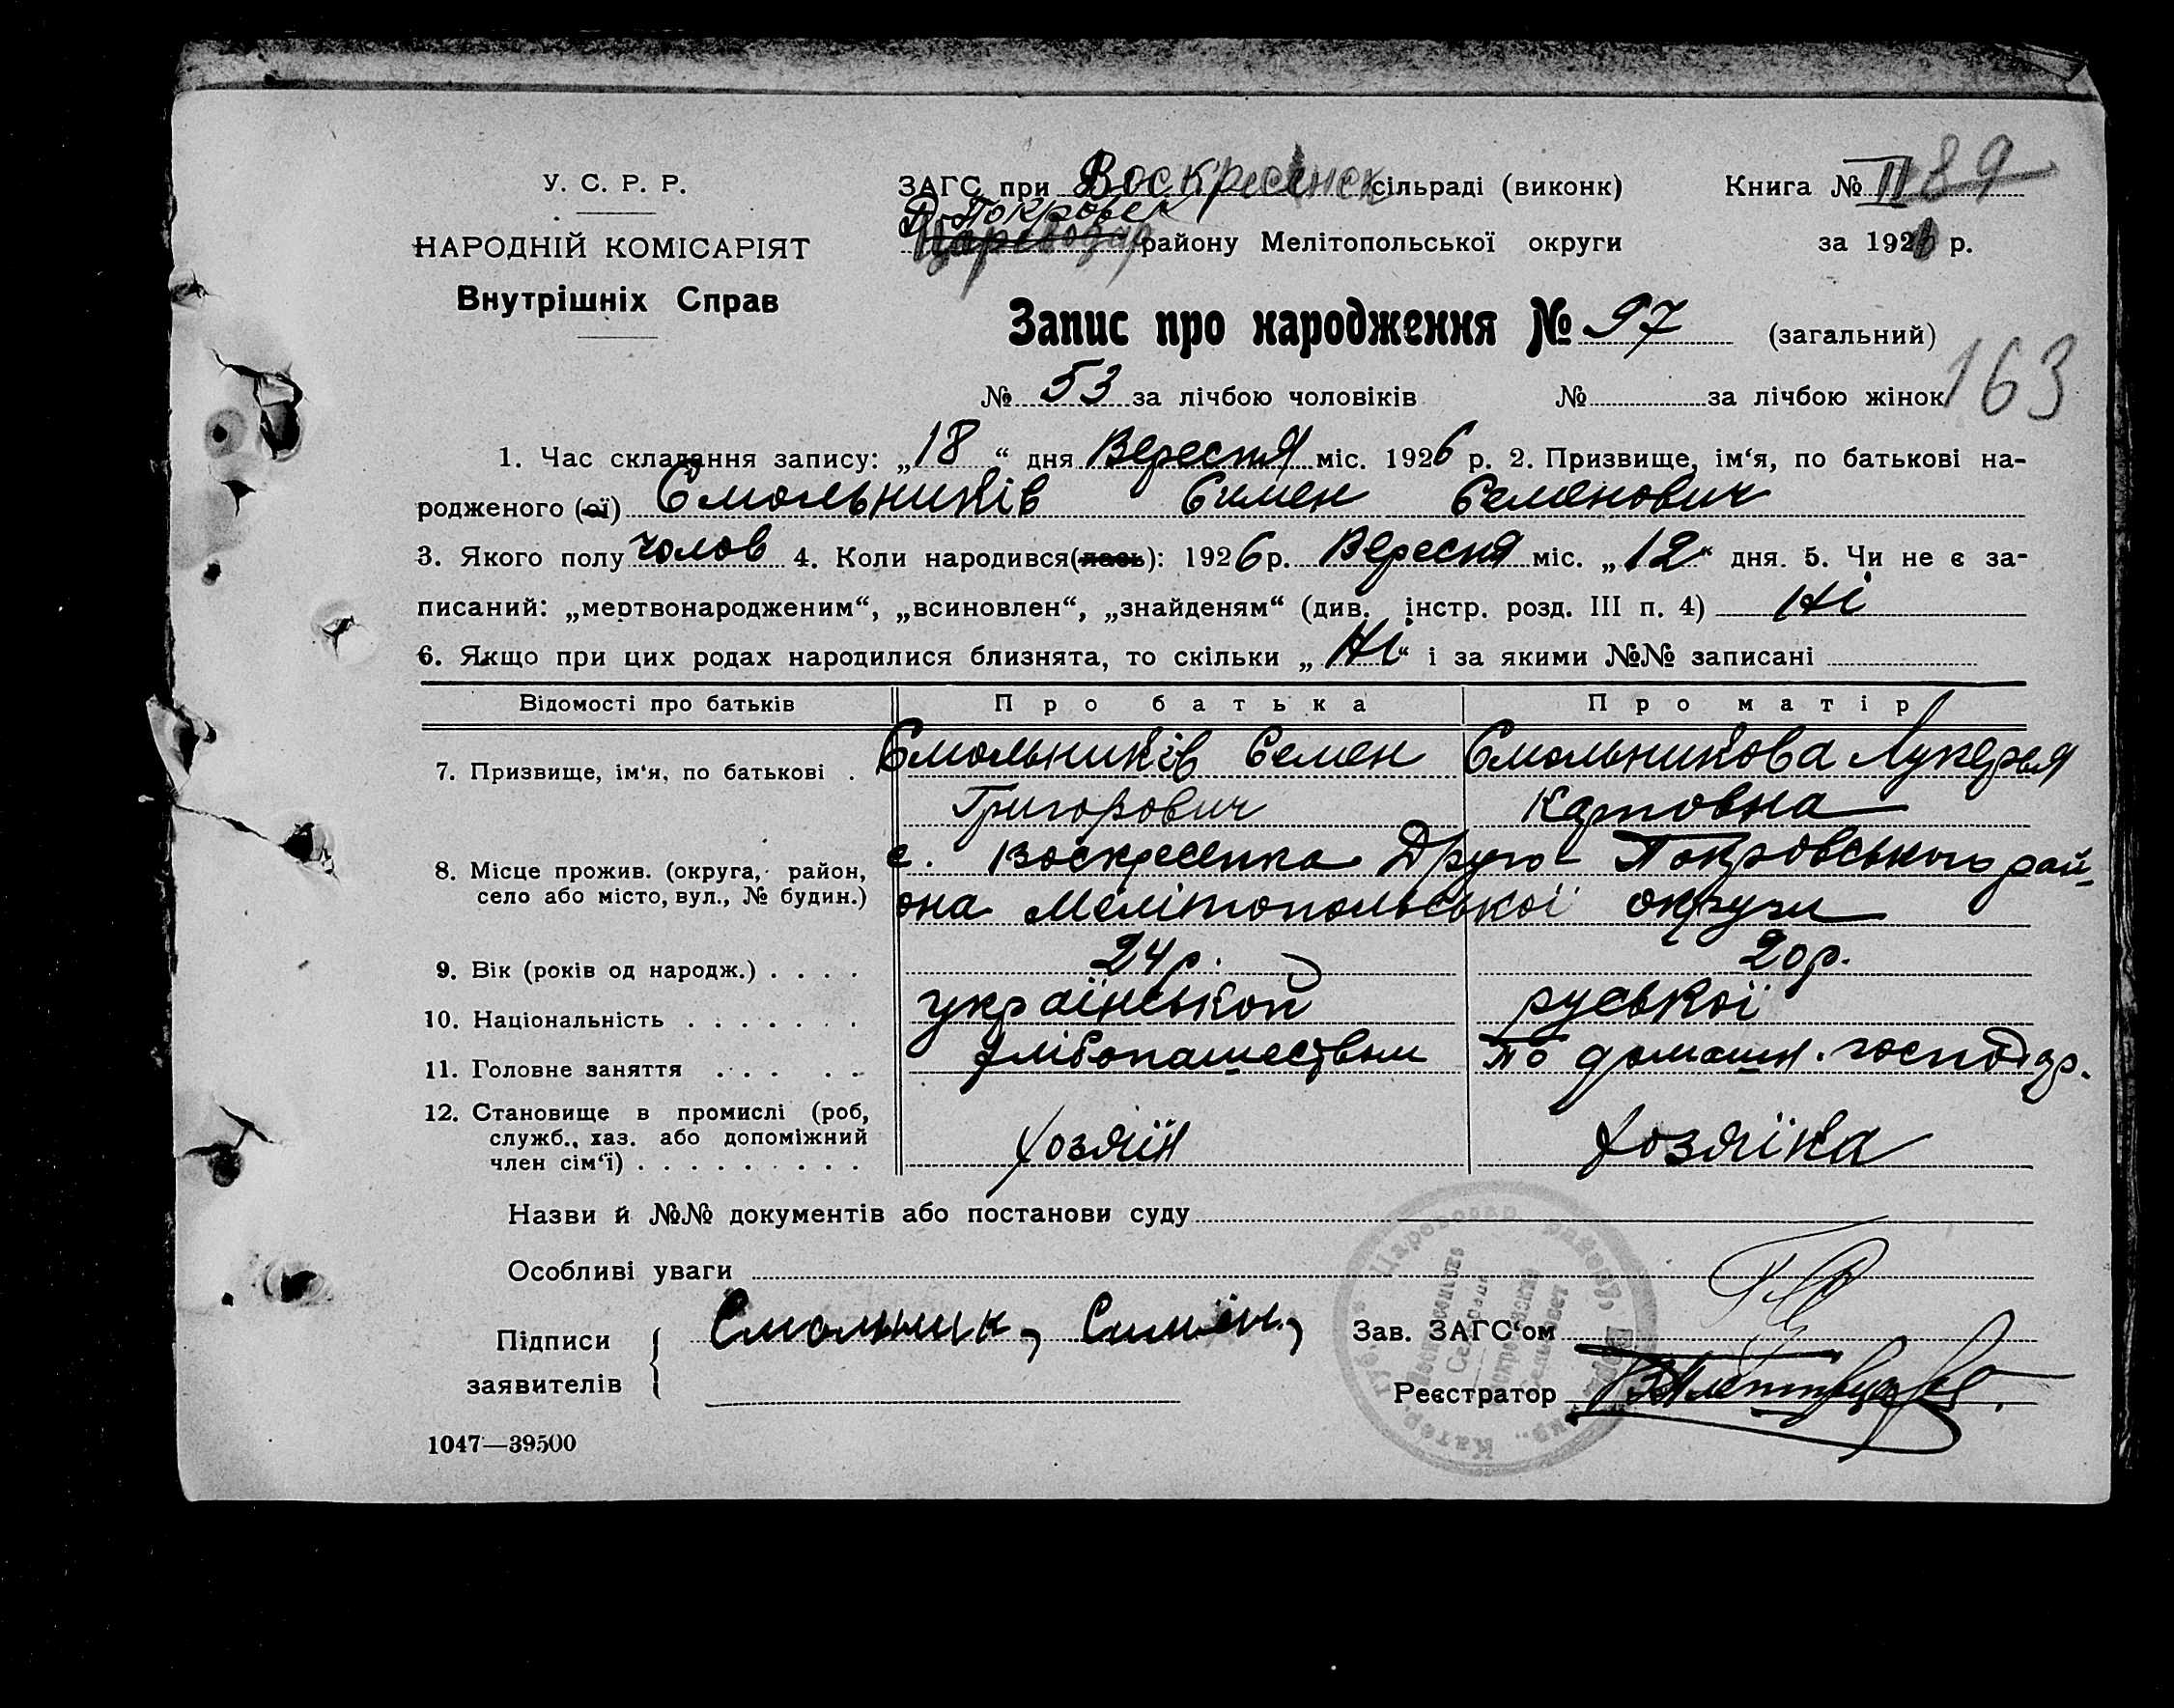 У. С. Р. Р.
НАРОДНІЙ КОМІСАРІЯТ
Внутрішніх Справ
ЗАГС при Воскресенск сільраді (виконк)
Д. Покровск
Цареводар району Мелітопольської округи
Книга № II 89
за 1926 р.
Запис про народження № 97 (загальний)
№ 53 за лічбою чоловіків № за лічбою жінок
163
1. Час складання запису: „18“ дня Вересня міс. 1926 р. 2. Призвище, ім‘я, по батькові на-
родженого (ої) Смольників Симен Семенович
3. Якого полу чолов 4. Коли народився(лась): 1926 р. Вересня міс. „12“ дня. 5. Чи не є за-
писаний: „мертвонародженим“, „всиновлен“, „знайденям“ (див. інстр. розд. III п. 4) Ні
6. Якщо при цих родах народилися близнята, то скільки „Ні“ і за якими №№ записані
Відомості про батьків Про батька Про матір
7. Призвище, ім‘я, по батькові . Смольників Семен Смольникова Лукерья
Григорович Карповна
8. Місце прожив. (округа, район, с. Воскресенка Друго-Покровського рай-
село або місто, вул., № будин.) она Мелітопольської округи
9. Вік (років од народж.) . . . . 24 р. 20 р.
10. Національність . . . . . . . української руської
11. Головне заняття . . . . . хлібопашеством по домашн. господар.
12. Становище в промислі (роб,
служб., хаз. або допоміжний
член сім‘ї) . . . . . . . . . хозяїн хозяїка
Назви й №№ документів або постанови суду
Особливі уваги
Підписи
заявителів
Смольник, Симен,
Зав. ЗАГС‘ом
Реєстратор
Цареводар району,
Катер. губ.
1047—39500